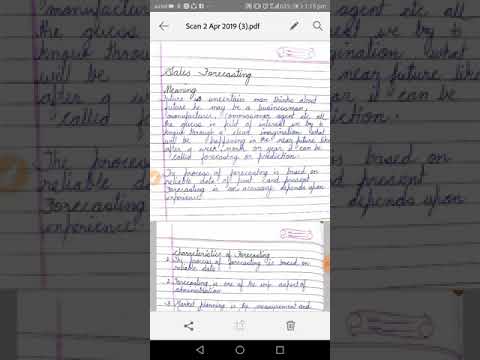 1:15 pm
Scan 2 Apr 2019 (3).pdf
Sales Forecasting
Meaning
future is uncertain man thinks about
future he may be a businessman,
manufacturer, commission agent etc all
the guess in field of interest we try to
knguw through a clear imagination what
will be happening in the near future like
after q week, month or year it can be
called forecasting or prediction.
The process of forecasting is based on
reliable data of past and present
Forecasting is an accuracy depends upon
experience
Characteristics of Forecasting
1. The process of forecasting is based on
reliable data
2. Forecasting is one of the imp. aspect of
administration
3. Market planning is the measurement and
manufactur
the guess
knguw throu
will be
after q w
called
The process
reliable da
Forecasting
experience
agent etc all
we try to
gination what
near future like
it can be
diction.
based on
present
depends upon